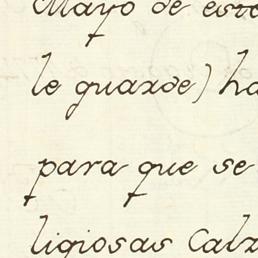 Mayo de este
le guarde) ha
para que se
ligiosas Calz